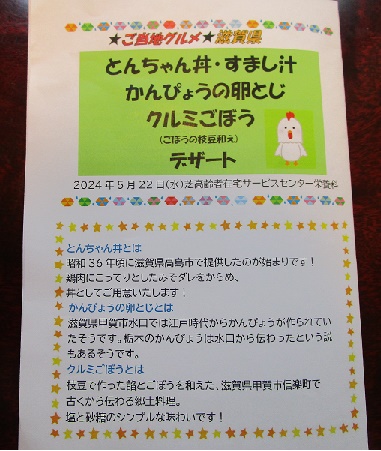 ★ご当地グルメ★滋賀県
とんちゃん丼・すまし汁
かんぴょうの卵とじ
クルミごぼう
(ごぼうの枝豆和え)
デザート
2024年5月22日(水)芝高齢者在宅サービスセンター栄養科
とんちゃん丼とは
昭和36年頃に滋賀県高島市で提供したのが始まりです!
鶏肉にこってりとしたみそダレをからめ、
丼としてご用意いたします!
かんぴょうの卵とじとは
滋賀県甲賀市水口では江戸時代からかんぴょうが作られてい
たそうです。栃木のかんぴょうは水口から伝わったという説
もあるそうです。
クルミごぼうとは
枝豆で作った餡とごぼうを和えた、滋賀県甲賀市信楽町で
古くから伝わる郷土料理。
塩と砂糖のシンプルな味わいです!